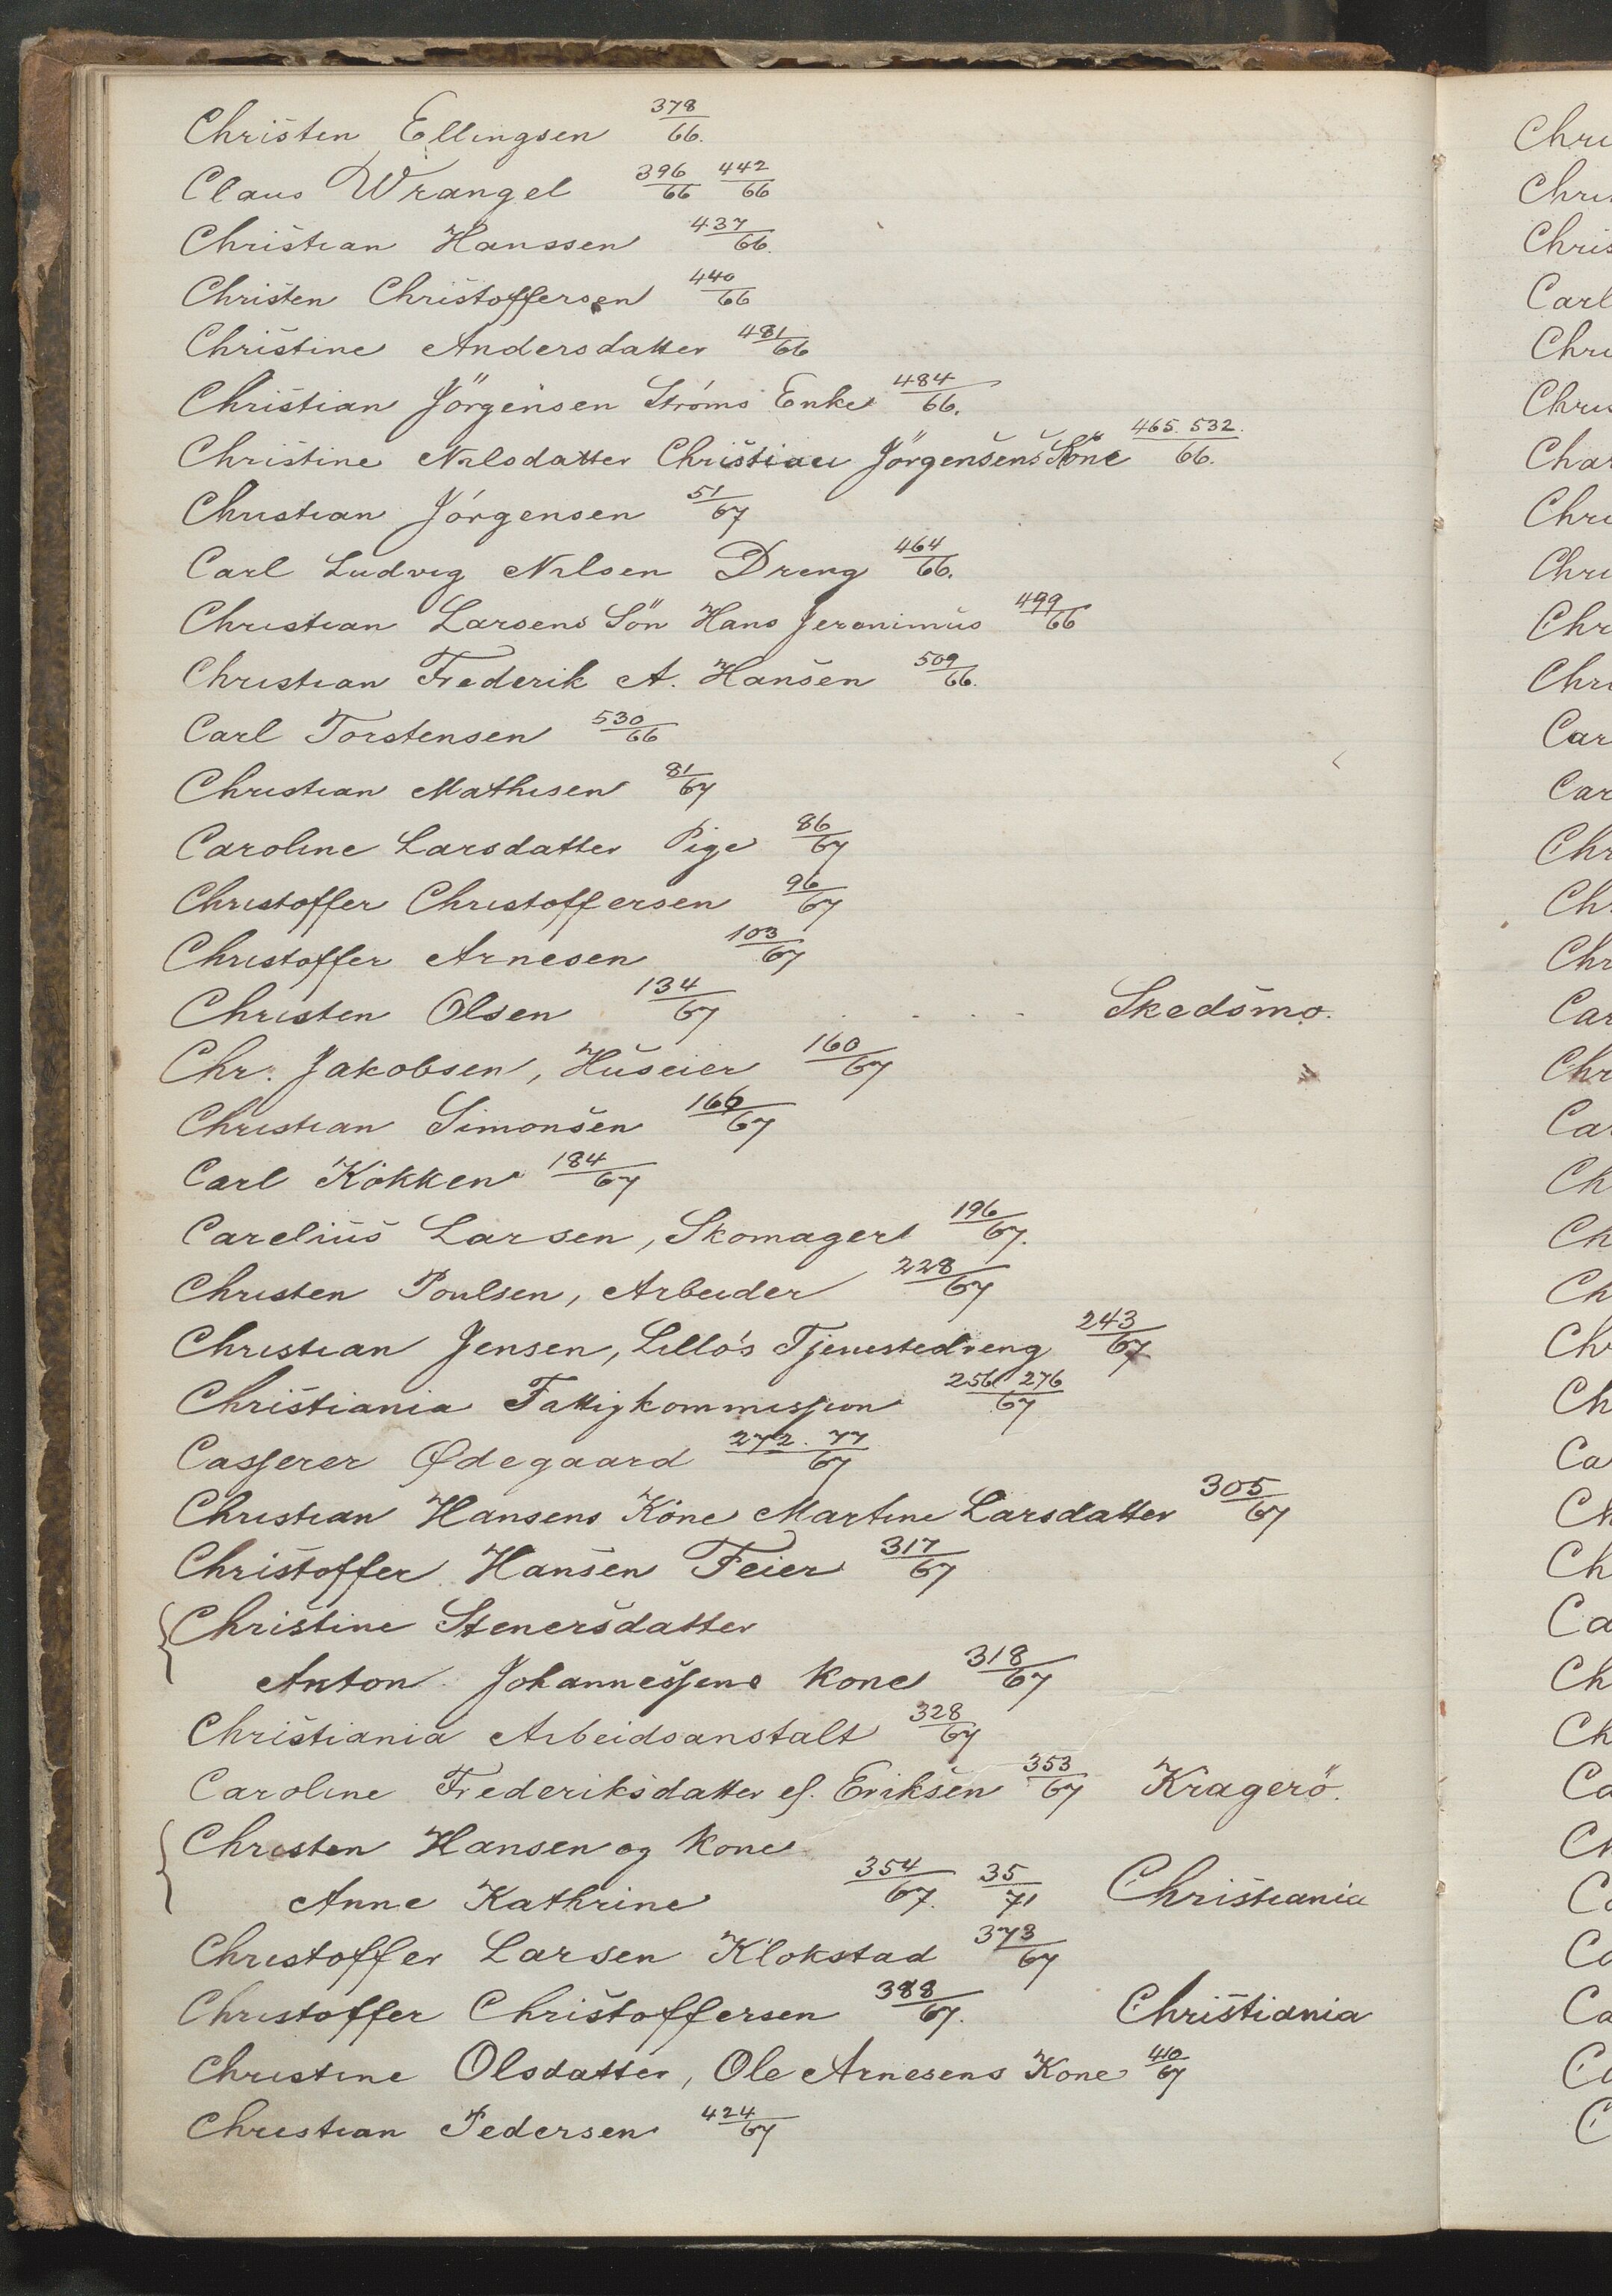 Christen Ellingsen 378/66.
Claus Wrangel 396/66 442/66
Christian Hanssen 437/66.
Christen Christoffersen 440/66
Christine Andersdatter 481/66
Christian Jörgensen Ströms Enke 484/66.
Christine Nilsdatter Christian Jörgensens Kone 465. 532./66.
Christian Jörgensen 51/67
Carl Ludvig Nilsen Dreng 464/66.
Christian Larsens Sön Hans Jeronimus 499/66
Christian Frederik A. Hansen 509/66.
Carl Torstensen 530/66
Christian Mathisen 81/67
Caroline Larsdatter Pige 86/67
Christoffer Christoffersen 96/67
Christoffer Arnesen 103/67
Christen Olsen 134/67 . . . . Skedsmo.
Chr. Jakobsen, Huseier 160/67
Christian Simonsen 166/67
Carl Kokken 184/67
Carelius Larsen, Skomager 196/67.
Christen Poulsen, Arbeider 228/67
Christian Jensen, Lillo's Tjenestedreng 243/67
Christiania Fattigkommission 256 276/67
Casserer Ødegaard 272. 77/67
Christian Hansens Kone Martine Larsdatter 305/67
Christoffer Hansen Feier 317/67
Christine Stenersdatter
Anton Johannessens Kone 318/67
Christiania Arbeidsanstalt 328/67
Caroline Frederiksdatter ef. Eriksen 353/67 Kragerö.
Christen Hansen og Kone
Anne Kathrine 354/67. 35/71 Christiania
Christoffer Larsen Klokstad 373/67
Christoffer Christoffersen 388/67. Christiania
Christine Olsdatter, Ole Arnesens Kone 410/67
Christian Pedersen 424/67